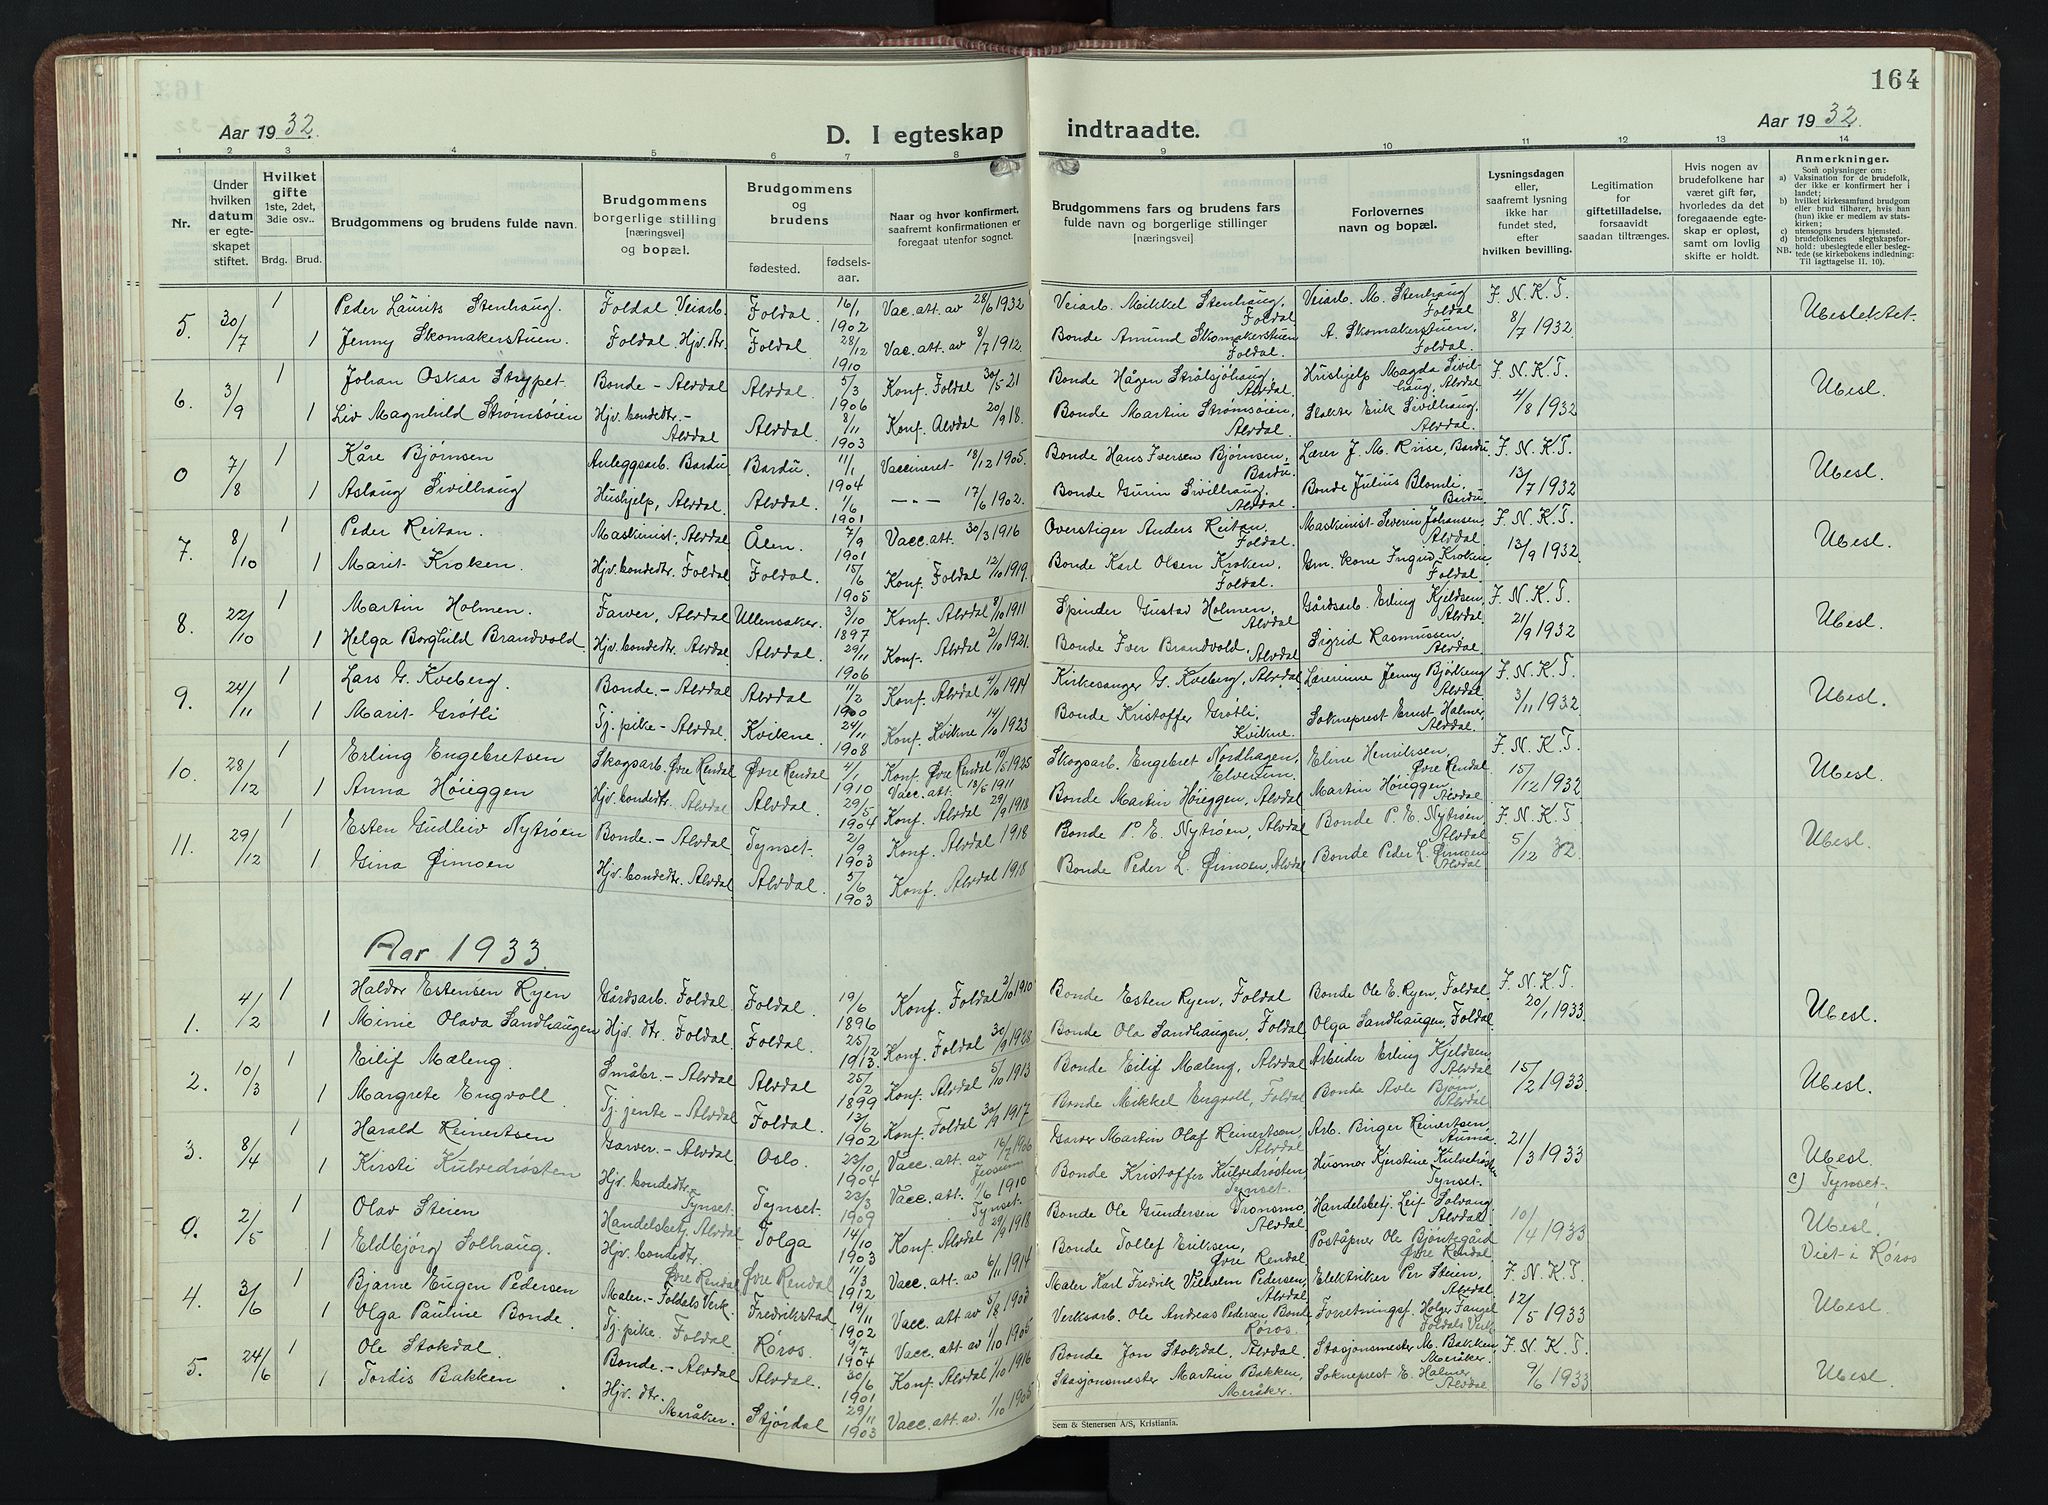 164
Aar 1932.
D. I egteskap indtraadte.
Aar 1932.
1 2 3 4 5 6 7 8 9 10 11 12 13 14
Nr.
Under hvilken datum er egteskapet stiftet.
Hvilket gifte 1ste, 2det, 3die osv..
Brdg. Brud.
Brudgommens og brudens fulde navn.
Brudgommens borgerlige stilling [næringsvei] og bopæl.
Brudgommens og brudens
fødested. fødselsaar.
Naar og hvor konfirmert, saafremt konfirmationen er foregaat utenfor sognet.
Brudgommens fars og brudens fars fulde navn og borgerlige stillinger [næringsvei]
Forlovernes navn og bopæl.
Lysningsdagen eller, saafremt lysning ikke har fundet sted, efter hvilken bevilling.
Legitimation for giftetilladelse, forsaavidt saadan tiltrænges.
Hvis nogen av brudefolkene har været gift før, hvorledes da det foregaaende egteskap er opløst, samt om lovlig skifte er holdt.
Anmerkninger.
Som oplysninger om:
a) Vaksination for de brudefolk, der ikke er konfirmert her i landet;
b) hvilket kirkesamfund brudgom eller brud tilhører, hvis han (hun) ikke er medlem av statskirken;
c) utensogns bruders hjemsted.
d) brudefolkenes slegtskapsforhold: ubeslegtede eller beslegtede (se kirkebokens indledning: Til Iagttagelse II. 10).
NB.
5 30/7 1 Peder Laurits Stenhaug. Foldal. Veiarb. Foldal. 16/1 1902 Vac. att. av 28/6 1932 Veiarb. Mikkel Stenhaug, Foldal. Veiarb. M. Stenhaug Foldal F. N. K. T. 8/7 1932 Ubeslektet.
1 Jenny Skomakerstuen. Foldal. Hjv. dtr. Foldal 28/12 1910 Vac. att. av 8/7 1912. Bonde Amund Skomakerstuen Foldal. A. Skomakerstuen, Foldal.
6. 3/9 1 Johan Oskar Strypet. Bonde - Alvdal Alvdal 5/3 1906 Konf. Foldal 30/5 21 Bonde Hågen Strålsjöhaug, Alvdal. Hushjelp Magda Sivilhaug, Alvdal F. N. K. T. 4/8 1932 Ubesl.
1 Liv Magnhild Strømsøien Hjv. bondedtr. - Alvdal Alvdal. 8/11 1903 Konf. Alvdal 20/9 18. Bonde Martin Strømsøien, Alvdal. Erik Sivilhaug, Alvdal.
0 7/8 1 Kåre Bjørnsen Anleggsarb. Bardu. Bardu. 11/1 1904 Vaccineret 18/12 1905. Bonde Hans Iversen Bjørnsen, Bardu. Lærer J. M. Riise, Bardu F. N. K. T. 13/7 1932 Ubesl.
1 Aslaug Sivilhaug Hushjelp, Alvdal Alvdal. 1/6 1901 — „ — 17/6 1902. Bonde Gurin Sivilhaug. Alvdal. Bonde Julius Blomli. Bardu
7. 8/10 1 Peder Reitan. Maskinist, Alvdal Ålen. 7/9 1901 Vacc. att. 30/3 1916 Overstiger Anders Reitan, Foldal. Maskinist Severin Johansen, Alvdal F. N. K. T. 13/9 1932 Ubesl.
1 Marit Kroken. Hjv. bondedtr. Foldal Foldal. 15/6 1905 Konf. Foldal 12/10 1919. Bonde Karl Olsen Kroken, Foldal. Gm. kone Ingrid Kroken Foldal.
8. 22/10 1 Martin Holmen. Farver, Alvdal Ullensaker. 3/10 1897 Konf. Alvdal 8/10 1911 Spinder Gustav Holmen, Alvdal Gårdsarb. Erling Kjeldsen, Alvdal F. N. K. T. 21/9 1932 Ubesl.
1 Helga Borghild Brandvold Hjv. bondedtr. Alvdal Alvdal. 29/11 1906 Konf. Alvdal 2/10 1921. Bonde Iver Brandvold, Alvdal Sigrid Rasmussen, Alvdal.
9. 24/11 1 Lars G. Kveberg. Bonde. - Alvdal Alvdal 11/2 1900 Konf. Alvdal 4/10 1914 Kirkesanger G. Kveberg, Alvdal. Lærerinne Jenny Bjökeng Alvdal F. N. K. T. 3/11 1932. Ubesl.
1 Marit Grøtli. Tj. pike - Alvdal. Kvikne 24/11 1908 Konf. Kvikne 14/10 1923 Bonde Kristoffer Grøtli, Kvikne. Sokneprest Ernst Halmer, Alvdal.
10. 28/12 1 Erling Engebretsen Skogsarb. Øvre Rendal Øvre Rendal 4/1 1910 Konf. Øvre Rendal 10/5 1925 Skogsarb. Engebret Nordhagen, Elverum. Eline Henriksen, Øvre Rendal F. N. K. T. 15/12 1932 Ubesl.
1 Anna Höieggen Hjv. bondedtr. Alvdal Alvdal. 29/5 1904 Vacc. att. 13/6 1911 Konf. Alvdal 29/9 1918 Bonde Martin Höieggen, Alvdal Martin Höieggen, Alvdal
11. 29/12 1 Esten Gudleiv Nytrøen Bonde. - Alvdal. Tynset. 2/9 1903 Konf. Alvdal 1918 Bonde P. E. Nytrøen, Alvdal Bonde P. E. Nytrøen, Alvdal F. N. K. T. 5/12 32 Ubesl.
1 Gina Øimoen Hjv. bondedtr. Alvdal Alvdal. 5/6 1903 Konf. Alvdal 1918 Bonde Peder L. Øimoen, Alvdal Bonde Peder L. Øimoen Alvdal
Aar 1933.
1. 4/2 1 Haldor Estensen Ryen Gårdsarb. Foldal Foldal. 19/6 1896 Konf. Foldal 2/10 1910 Bonde Esten Ryen, Foldal Bonde Ole E. Ryen, Foldal. F. N. K. T. 20/1 1933. Ubesl.
1 Minie Olava Sandhaugen Hjv. dtr. Foldal. Foldal. 25/12 1913. Konf. Foldal 30/9 1928 Bonde Ola Sandhaugen, Foldal Olga Sandhaugen, Foldal
2. 10/3 1 Eilif Mæleng. Småbr. - Alvdal Alvdal 25/2 1899 Konf. Alvdal 5/10 1913 Bonde Eilif Mæleng, Alvdal Arbeider Erling Kjeldsen, Alvdal 15/2 1933 Ubesl.
1 Margrete Engvoll. Tj. jente - Alvdal Foldal. 13/6 1902 Konf. Foldal 30/9 1917 Bonde Mikkel Engvoll, Foldal Bonde Avle Bjørn, Alvdal
3. 8/4 1 Harald Reinertsen Garver. - Alvdal. Oslo. 23/10 1904 Vacc. att. av 16/7 1906 Garver Martin Olaf Reinertsen, Alvdal Arb. Birger Reinertsen, Auma. 21/3 1933 Ubesl.
1 Kirsti Kulvedrøsten Hjv. bondedtr. Tynset Tynset. 23/3 1909 Vacc. att. 1/6 1910 Tynset. Bonde Kristoffer Kulvedrøsten, Tynset. Husmor Kjerstine Kulvedrøsten Tynset. c) Tynset.
0. 2/5 1 Olav Steien Handelsbetj. Alvdal Tolga 14/10 1903 Konf. Alvdal 29/9 1918 Bonde Ole Gundersen Tronsmo, Alvdal Handelsbetj. Leif Solvang Alvdal. 10/4 1933 Ubesl.
1 Eldbjörg Solhaug. Hjv. bondedtr. Øvre Rendal Øvre Rendal 11/3 1912 Vacc. att. av 6/11 1914 Bonde Tollef Eriksen, Øvre Rendal Poståpner Ole Bjöntegård Øvre Rendal Viet i Røros
4. 3/6 1 Bjarne Eugen Pedersen Maler. - Foldals Verk. Fredrikstad 19/11 1902 Vacc. att av 5/8 1903 Maler Karl Fredrik Vilhelm Pedersen, Alvdal Elektriker Per Steien, Alvdal F. N. K. T. 12/5 1933 Ubesl.
1 Olga Pauline Bonde. Tj. pike. Foldal. Røros 9/7 1904 Vacc. att av 1/10 1905 Verksarb. Ole Andreas Pedersen Bonde Røros. Forretningsf. Holger Fangel Foldals Verk
5. 24/6 1 Ole Stokdal. Bonde. - Alvdal Alvdal. 30/6 1901 Konf. Alvdal 1/10 1916 Bonde Jon Stokdal, Alvdal Stasjonsmester M. Bakken, Meråker. F. N. K. T. 9/6 1933 Ubesl.
1 Tordis Bakken Hjv. dtr. Meråker. Stjørdal 29/11 1903 Vacc. att. av. 1/10 1905 Stasjonsmester Martin Bakken, Meråker. Sokneprest E. Halmer Alvdal
Sem & Stenersen A/S, Kristiania.